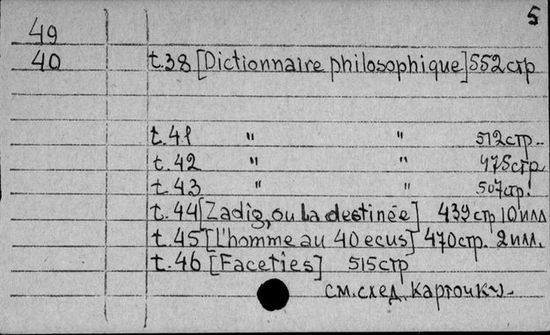 5
49
40 t.38 [Dictionnaire philosophique] 552 стр
t.41 " " 512 стр.
t.42 " " 475 стр
t.43 " " 507 стр.
t.44 [Zadig, ou la destinée] 439 стр 10 илл
t.45 [L'homme au 40 ecus] 470 стр. 2 илл.
t.46 [Faceties] 515 стр
см. след. карточку.